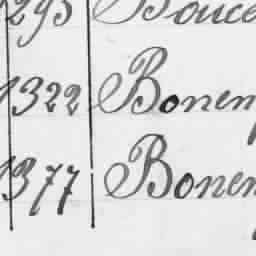 1293 Bouce
1322 Bonem
1377 Bonem